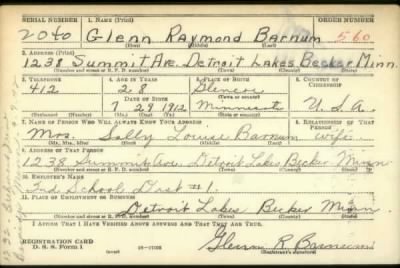 SERIAL NUMBER 1. NAME (Print) ORDER NUMBER
2040 Glenn Raymond Barnum 560
(First) (Middle) (Last)
2. ADDRESS (Print)
1238 Summit Ave. Detroit Lakes Becker Minn.
(Number and street or R. F. D. number) (Town) (County) (State)
3. TELEPHONE 4. AGE IN YEARS 5. PLACE OF BIRTH 6. COUNTRY OF CITIZENSHIP
412 28 Glencoe
7 29 1912 Minnesota U.S.A.
7. NAME OF PERSON WHO WILL ALWAYS KNOW YOUR ADDRESS 8. RELATIONSHIP OF THAT PERSON
Mrs. Sally Louise Barnum wife
(Mr., Mrs., Miss) (First) (Middle) (Last)
9. ADDRESS OF THAT PERSON
1238 Summit Ave. Detroit Lakes Becker Minn
(Number and street or R. F. D. number) (Town) (County) (State)
10. EMPLOYER'S NAME
Ind School Dist #1.
11. PLACE OF EMPLOYMENT OR BUSINESS
Detroit Lakes Becker Minn.
(Number and street or R. F. D. number) (Town) (County) (State)
I AFFIRM THAT I HAVE VERIFIED ABOVE ANSWERS AND THAT THEY ARE TRUE.
REGISTRATION CARD
D. S. S. FORM 1 Glenn R Barnum
(Registrant's signature)